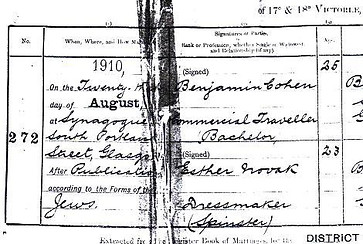 of 17° & 18° VICTORIÆ,
No.
When, Where, and How
Signatures of Parties.
Rank or Profession, whether Single or Widowed,
and Relationship (if any).
Age.
1910,
(Signed)
25
On the Twenty-
Benjamin Cohen
day of August
272
at Synagogue
Commercial Traveller
South Portland
Bachelor,
Street, Glasgow
(Signed)
23
After Publication
Esther Novak
according to the Forms of the
Jews.
Dressmaker
(Spinster)
Extracted from the Register Book of Marriages, for the
DISTRICT